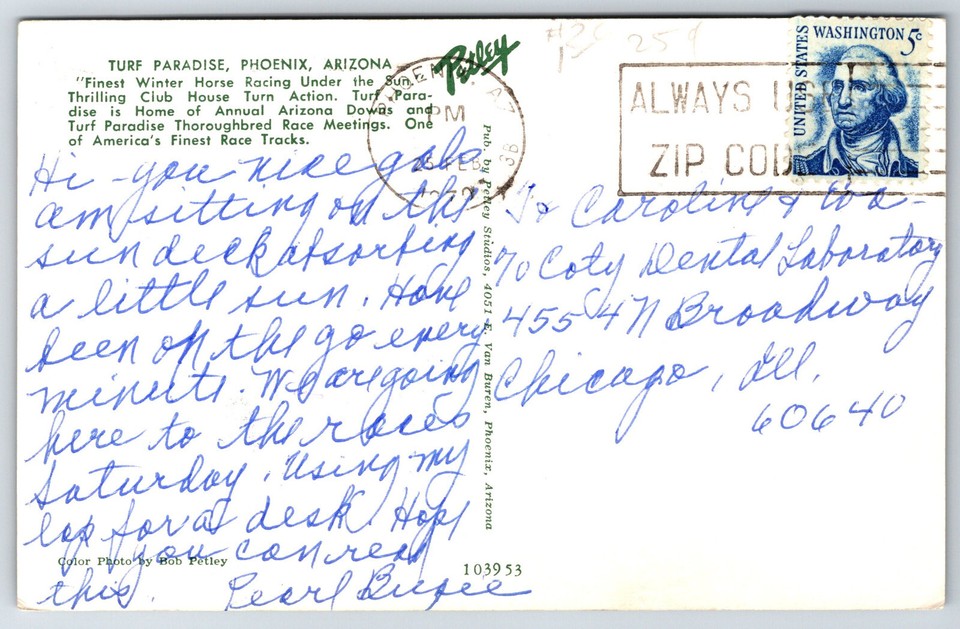 TURF PARADISE, PHOENIX, ARIZONA
"Finest Winter Horse Racing Under the Sun.
Thrilling Club House Turn Action. Turf Para-
dise is Home of Annual Arizona Downs and
Turf Paradise Thoroughbred Race Meetings. One
of America's Finest Race Tracks.
Petley
Hi - you nice gals
am sitting on the
sun deck absorbing
a little sun. Have
been on the go every
minute. We are going
here to the races
Saturday. Using my
lap for a desk. Hope
you can read
this. Pearl
Color Photo by Bob Petley
Pub. by Petley Studios, 4051 E. Van Buren, Phoenix, Arizona
103953
25¢
PM
ALWAYS
ZIP CODE
UNITED STATES
WASHINGTON 5c
To Caroline &
% Coty Dental Laboratory
4554 N Broadway
Chicago, Ill.
60640